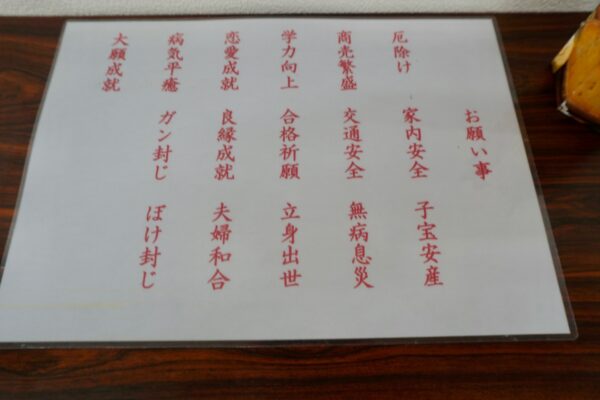 お願い事
厄除け 家内安全 子宝安産
商売繁盛 交通安全 無病息災
学力向上 合格祈願 立身出世
恋愛成就 良縁成就 夫婦和合
病気平癒 ガン封じ ぼけ封じ
大願成就